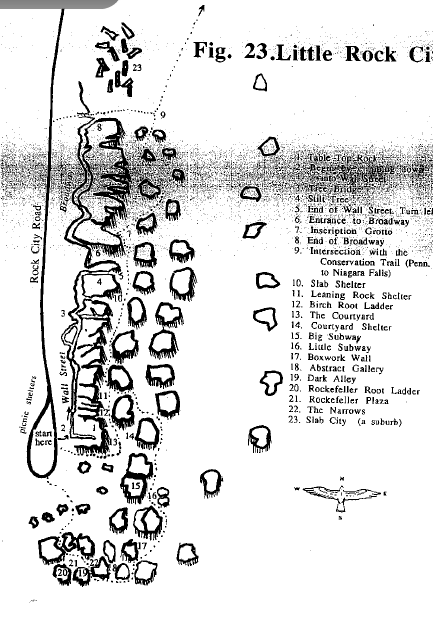 Fig. 23.Little Rock Ci
23
9
1. Table Top Rock
3. Tree Bridge
4. Stilt Tree
5. End of Wall Street. Turn lef
6. Entrance to Broadway
7. Inscription Grotto
8. End of Broadway
9. Intersection with the
Conservation Trail (Penn.
to Niagara Falls)
10. Slab Shelter
11. Leaning Rock Shelter
12. Birch Root Ladder
13. The Courtyard
14. Courtyard Shelter
15. Big Subway
16. Little Subway
17. Boxwork Wall
18. Abstract Gallery
19. Dark Alley
20. Rockefeller Root Ladder
21. Rockefeller Plaza
22. The Narrows
23. Slab City (a suburb)
8
7
Rock City Road
4
10
3
Wall Street
11
12
picnic shelters
start
here
2
13
14
15
16
17
21
22
20
19
18
N
W
E
S